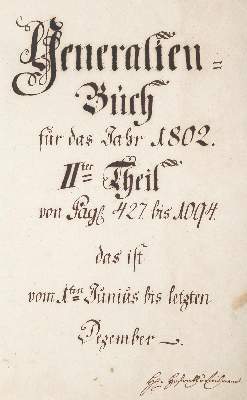 Generalien=
Buch
für das Jahr 1802.
IIter Theil
von Pag. 427. bis 1094.
das ist
vom 1ten Junius bis letzten
Dezember